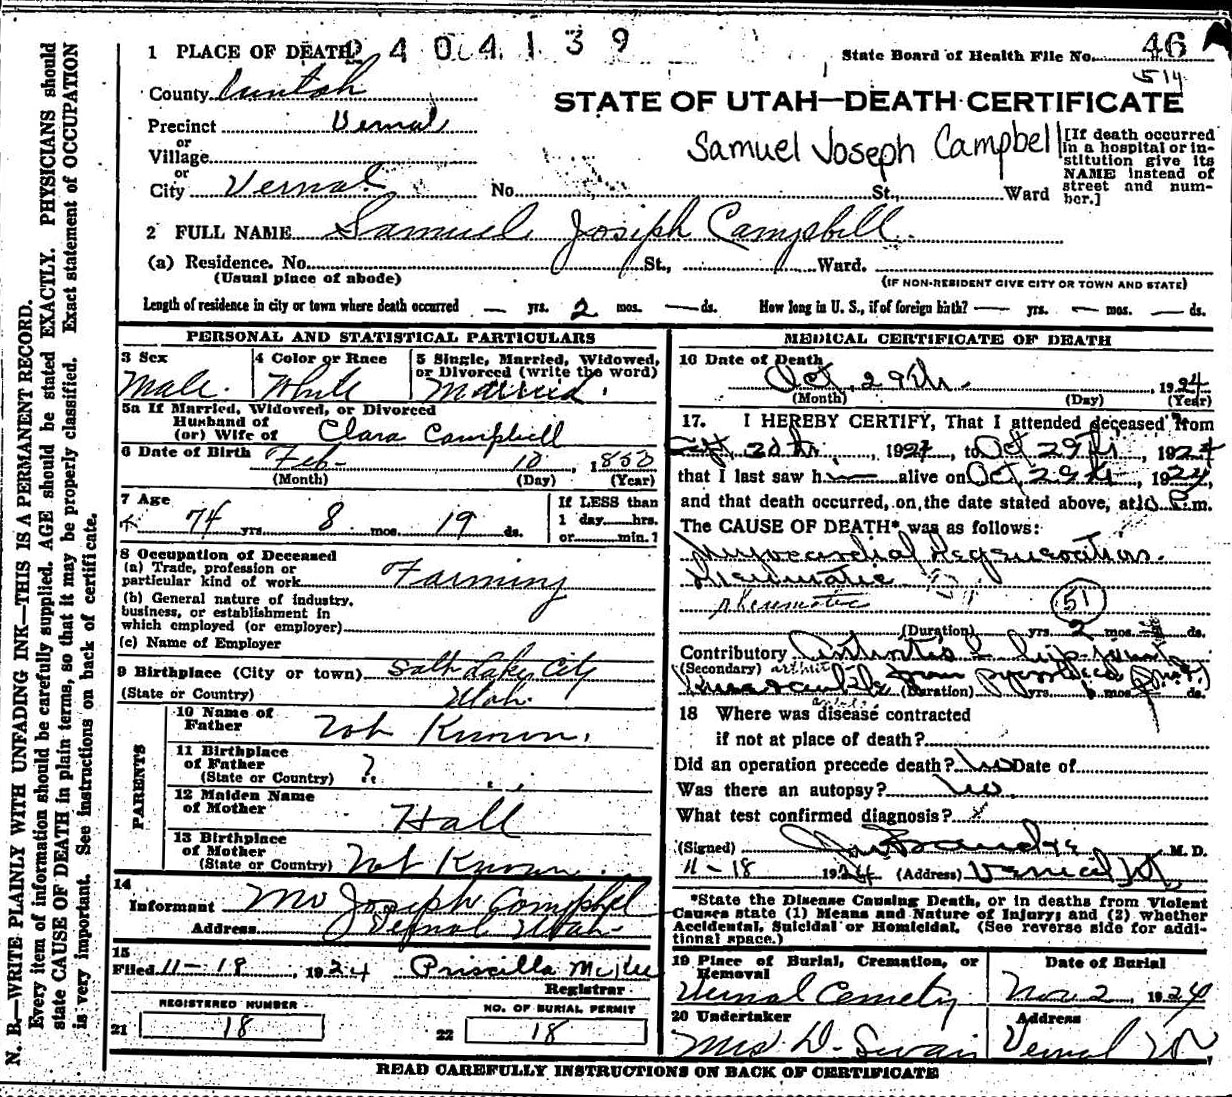 1 PLACE OF DEATH 2404139
State Board of Health File No. 46
514
County Uintah
STATE OF UTAH—DEATH CERTIFICATE
Precinct Vernal
or
Village
or
City Vernal No. St., Ward
Samuel Joseph Campbell
[If death occurred in a hospital or institution give its NAME instead of street and number.]
2 FULL NAME Samuel Joseph Campbell.
(a) Residence. No. St., Ward.
(Usual place of abode)
(IF NON-RESIDENT GIVE CITY OR TOWN AND STATE)
Length of residence in city or town where death occurred — yrs. 2 mos. — ds. How long in U. S., if of foreign birth? — yrs. — mos. — ds.
PERSONAL AND STATISTICAL PARTICULARS
3 Sex Male.
4 Color or Race White
5 Single, Married, Widowed, or Divorced (write the word) Married.
5a If Married, Widowed, or Divorced
Husband of
(or) Wife of Clara Campbell
6 Date of Birth Feb- 10, 1850
(Month) (Day) (Year)
7 Age 74 yrs. 8 mos. 19 ds.
If LESS than
1 day hrs.
or min.?
8 Occupation of Deceased
(a) Trade, profession or
particular kind of work Farming
(b) General nature of industry,
business, or establishment in
which employed (or employer)
(c) Name of Employer
9 Birthplace (City or town) Salt Lake City
(State or Country) Utah
PARENTS
10 Name of
Father Not Known.
11 Birthplace
of Father
(State or Country) ?
12 Maiden Name
of Mother Hall
13 Birthplace
of Mother
(State or Country) Not Known.
14
Informant Joseph Campbel
Address Vernal Utah
15
Filed 11-18, 1924 Priscilla McKee
Registrar
REGISTERED NUMBER
21 18
NO. OF BURIAL PERMIT
22 18
MEDICAL CERTIFICATE OF DEATH
16 Date of Death
Oct 29th 1924
(Month) (Day) (Year)
17. I HEREBY CERTIFY, That I attended deceased from
, 1924, to Oct 29th, 1924
that I last saw h alive on Oct 29th, 1924,
and that death occurred, on the date stated above, at 10 P.m.
The CAUSE OF DEATH* was as follows:
Myocardial Degeneration.
Rheumatic
rheumatic 51
(Duration) yrs. 2 mos. ds.
Contributory Arthritis hip joint
(Secondary) (Duration) yrs. 6 mos. ds.
18 Where was disease contracted
if not at place of death?
Did an operation precede death? No Date of
Was there an autopsy? No.
What test confirmed diagnosis? x
(Signed) M. D.
11-18 1924 (Address) Vernal Ut
*State the Disease Causing Death, or in deaths from Violent
Causes state (1) Means and Nature of Injury; and (2) whether
Accidental, Suicidal or Homicidal. (See reverse side for additional space.)
19 Place of Burial, Cremation, or
Removal
Vernal Cemetry
Date of Burial
Nov 2, 1924
20 Undertaker
Mrs D. Swain
Address
Vernal Ut
READ CAREFULLY INSTRUCTIONS ON BACK OF CERTIFICATE
N. B.—WRITE PLAINLY WITH UNFADING INK—THIS IS A PERMANENT RECORD.
Every item of information should be carefully supplied. AGE should be stated EXACTLY. PHYSICIANS should
state CAUSE OF DEATH in plain terms, so that it may be properly classified. Exact statement of OCCUPATION
is very important. See instructions on back of certificate.